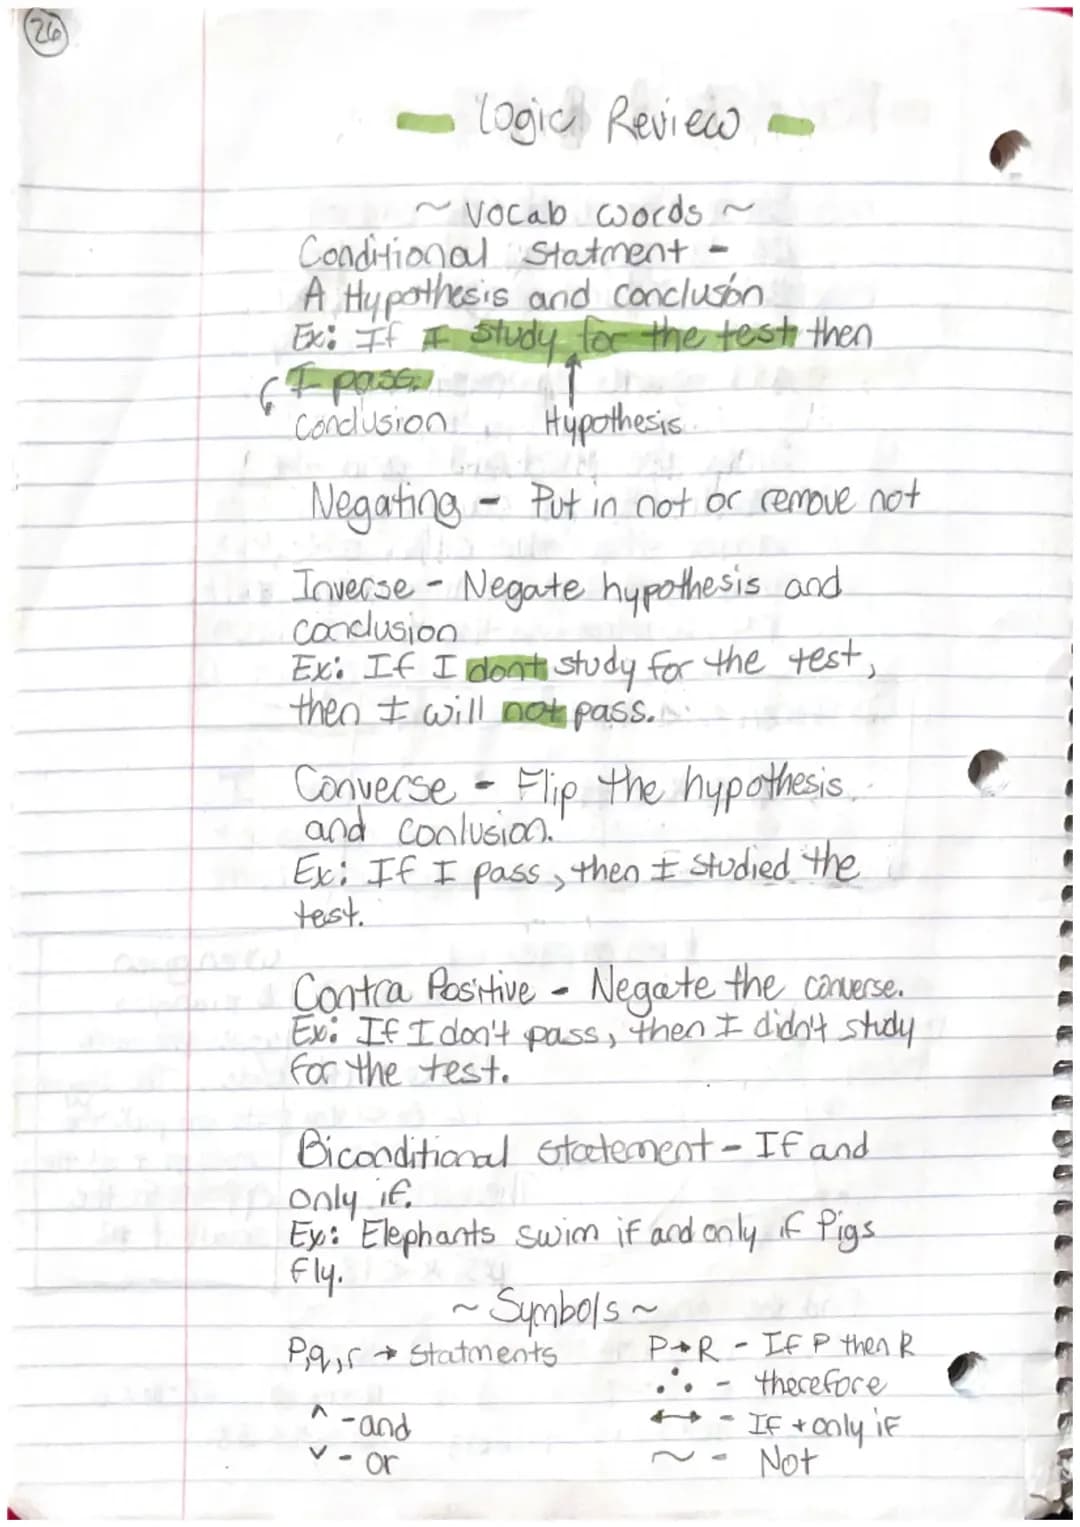 26
Logic Review
~ Vocab words ~
Conditional Statment -
A Hypothesis and conclusion
Ex: If I study for the test then
I pass.
Conclusion Hypothesis
Negating - Put in not or remove not
Inverse - Negate hypothesis and
conclusion
Ex: If I dont study for the test,
then I will not pass.
Converse - Flip the hypothesis
and conlusion.
Ex: If I pass, then I studied the
test.
Contra Positive - Negate the converse.
Ex: If I don't pass, then I didn't study
for the test.
Biconditional statement - If and
only if.
Ex: Elephants swim if and only if Pigs
Fly.
~ Symbols ~
P,q,r → Statments P→R - If P then R
∴ - therefore
^ - and ↔ - If + only if
v - or ~ - Not